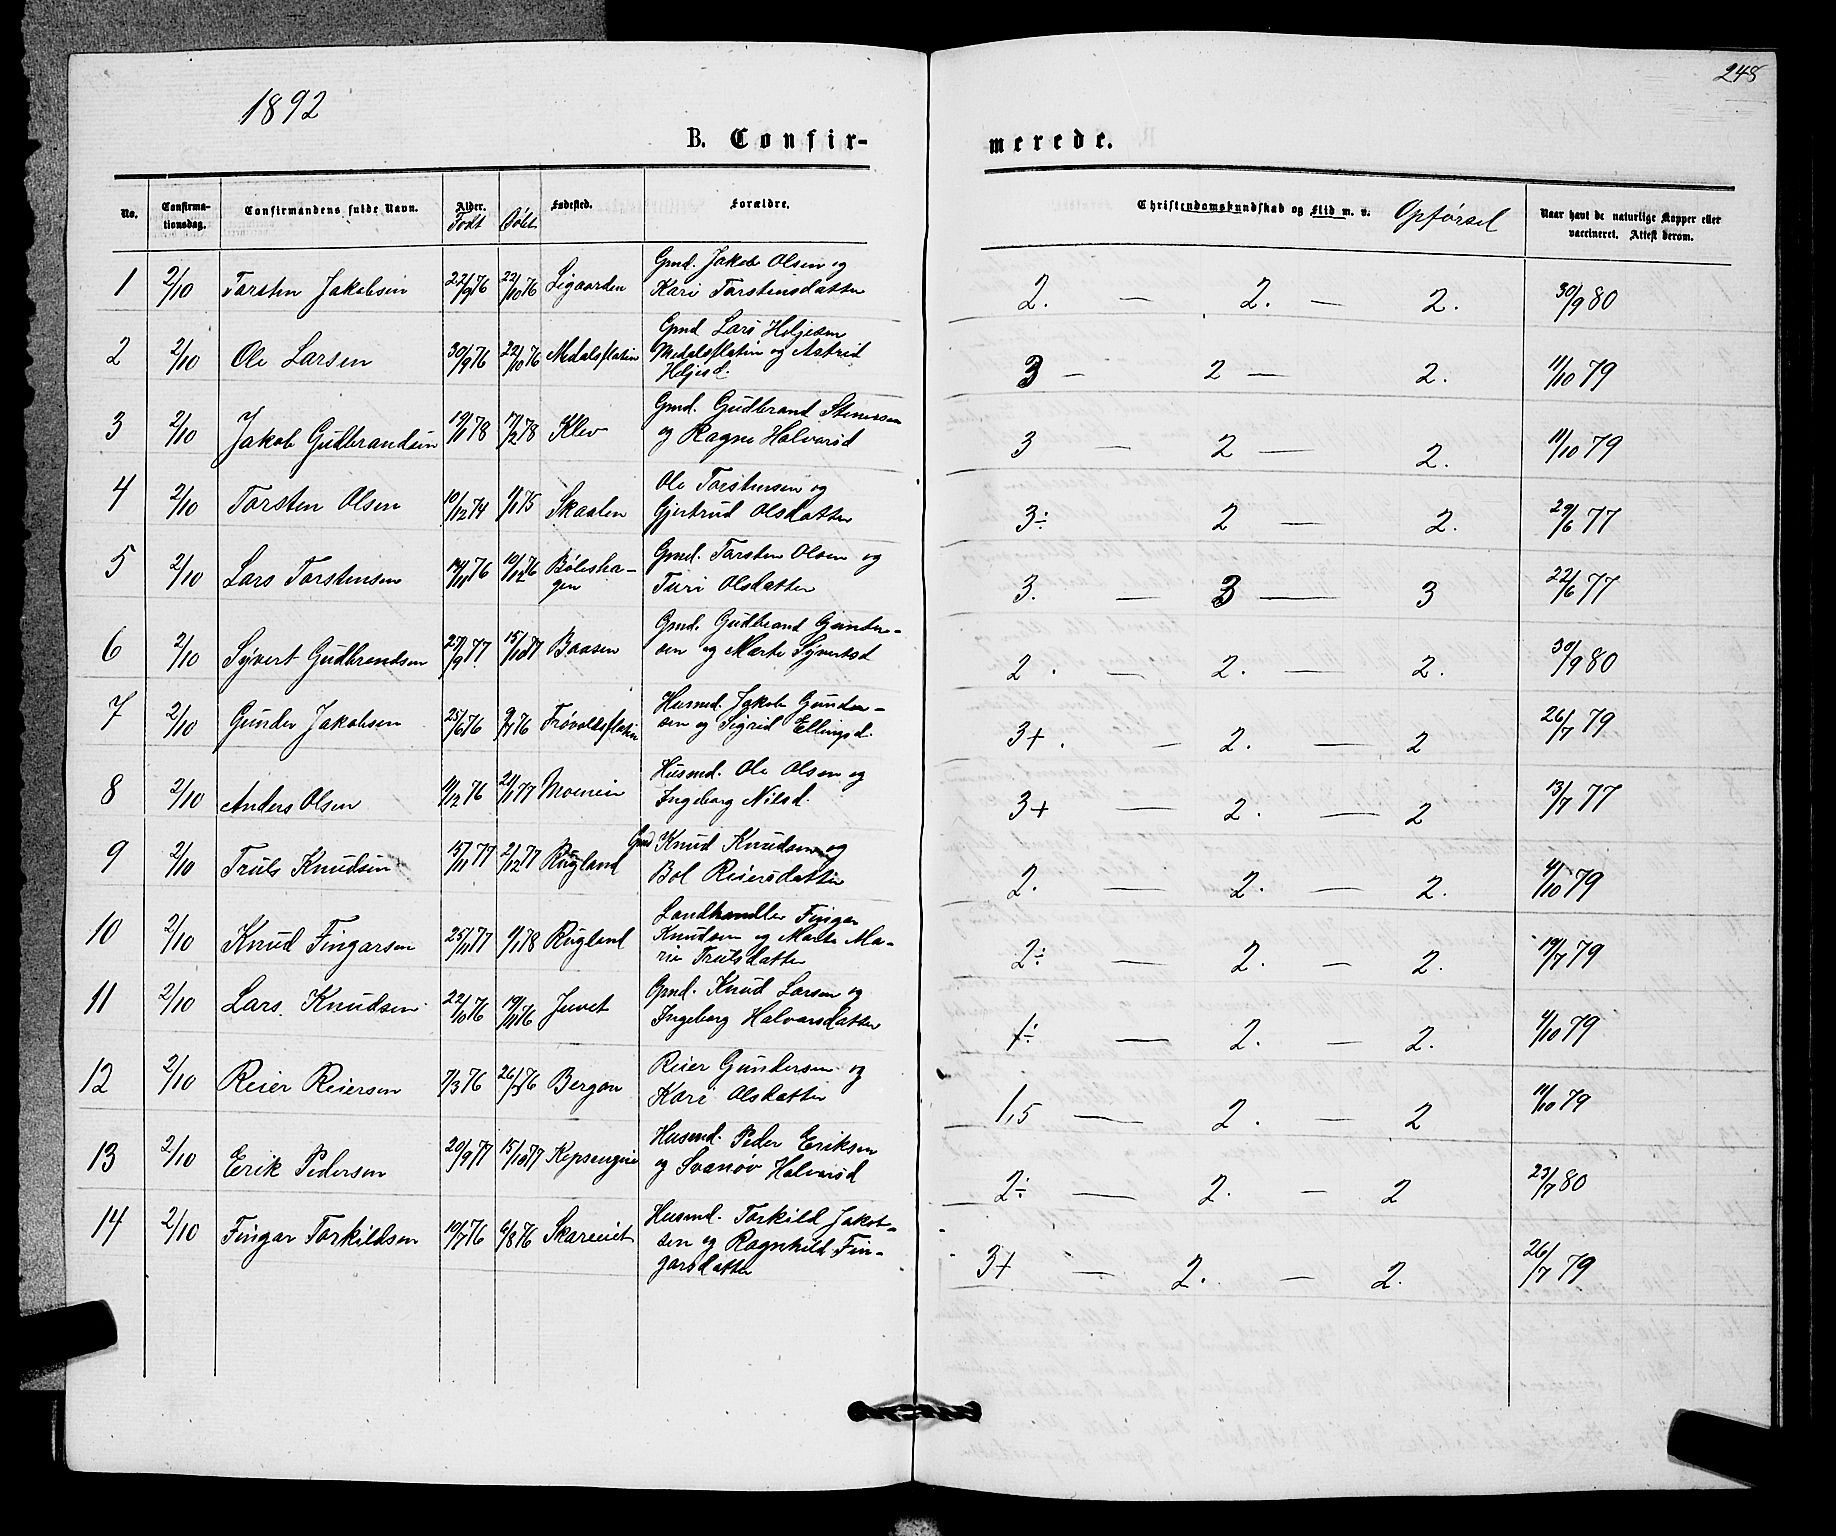 248
1892
B. Confir-
merede.
No. Confirma-tionsdag. Confirmandens fulde Navn. Alder. Født Døbt Fødested. Forældre. Christendomskundskab og Flid m. v. Opførsel Naar havt de naturlige Kopper eller vaccineret. Attest derom.
1 2/10 Torsten Jakobsen 22/9 76 22/10 76 Ligaarden Gmd. Jakob Olsen og
Kari Torstensdatter 2. — 2. — 2. 30/9 80
2 2/10 Ole Larsen 30/9 76 22/10 76 Medalsflatin Gmd Lars Helgesen
Medalsflatin og Astrid
Helgesd. 3 — 2 — 2. 11/10 79
3 2/10 Jakob Gudbrandsen 19/1 78 17/2 78 Klev Gmd. Gudbrand Stenersen
og Ragne Halvorsd 3 — 2 — 2. 11/10 79
4 2/10 Torsten Olsen 10/12 74 1/1 75 Skaalen Ole Torstensen og
Gjertrud Olsdatter 3÷ — 2 — 2. 29/6 77
5 2/10 Lars Torstensen 14/11 76 10/12 76 Bøleshagen Gmd. Torsten Olsen og
Turi Olsdatter 3. — 3 — 3 22/6 77
6 2/10 Syvert Gudbrandsen 27/9 77 15/10 77 Baasen Gmd. Gudbrand Gunder-
sen og Marte Syvertsd 2. — 2. — 2. 30/9 80
7 2/10 Gunder Jakobsen 25/6 76 9/7 76 Frøvoldsflatin Husmd. Jakob Gunder-
sen og Sigrid Ellingsd. 3+. — 2. — 2 26/7 79
8 2/10 Anders Olsen 11/12 76 21/1 77 Moeneie Husmd. Ole Olsen og
Ingeborg Nilsd. 3+ — 2. — 2 13/7 77
9 2/10 Truls Knudsen 15/11 77 2/12 77 Rugland Gmd Knud Knudsen og
Bol Reiersdatter 2. — 2. — 2. 4/10 79
10 2/10 Knud Fingarsen 25/11 77 1/1 78 Rugland Landhandler Fingar
Knudsen og Marte Ma-
rie Trulsdatter 2÷ — 2. — 2. 19/7 79
11 2/10 Lars Knudsen 22/10 76 19/11 76 Juvet Gmd. Knud Larsen og
Ingeborg Halvorsdatter 1÷ — 2. — 2. 4/10 79
12 2/10 Reier Reiersen 7/3 76 26/3 76 Bergan Reier Gundersen og
Kari Olsdatter 1,5 — 2. — 2 11/10 79
13 2/10 Erik Pedersen 20/9 77 15/10 77 Kepseneie Husmd. Peder Eriksen
og Svanøv Halvorsd 2÷ — 2. — 2 23/7 80
14 2/10 Fingar Torkildsen 10/7 76 6/8 76 Skareiet Husmd. Torkild Jakob-
sen og Ragnhild Fin-
garsdatter 3+ — 2. — 2. 26/7 79